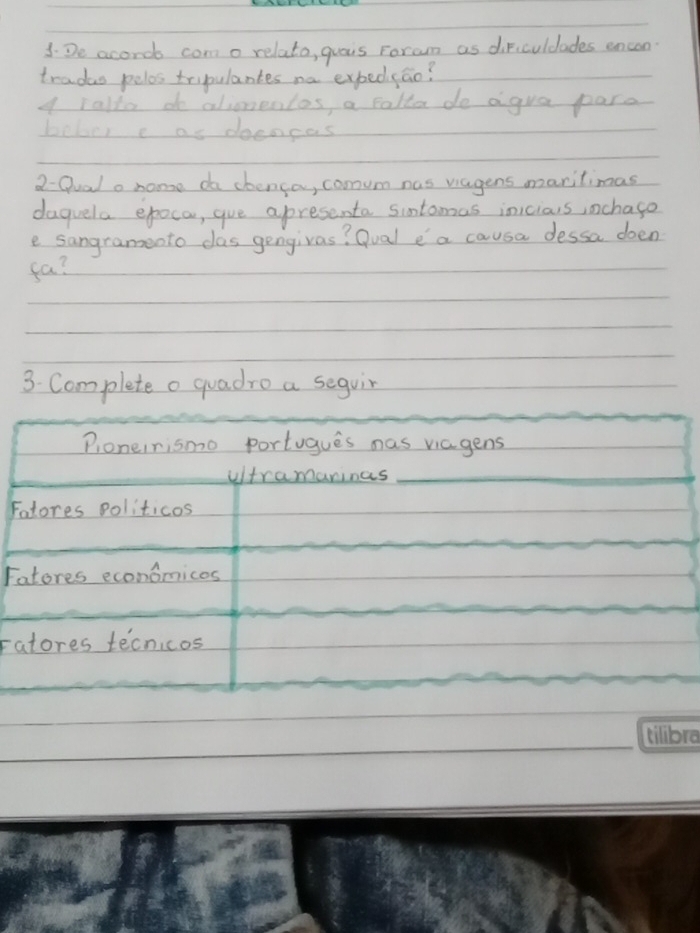 EXERCÍCIO
1-De acordo com o relato, quais foram as dificuldades encon-
tradas pelos tripulantes na expedição?
A falta de alimentos, a falta de água para
beber e as doenças
2-Qual o nome da doença, comum nas viagens marítimas
daquela época, que apresenta sintomas iniciais inchaço
e sangramento das gengivas? Qual é a causa dessa doen
ça?
3-Complete o quadro a seguir
Pioneirismo português nas viagens
ultramarinas
Fatores políticos
Fatores econômicos
Fatores técnicos
tilibra